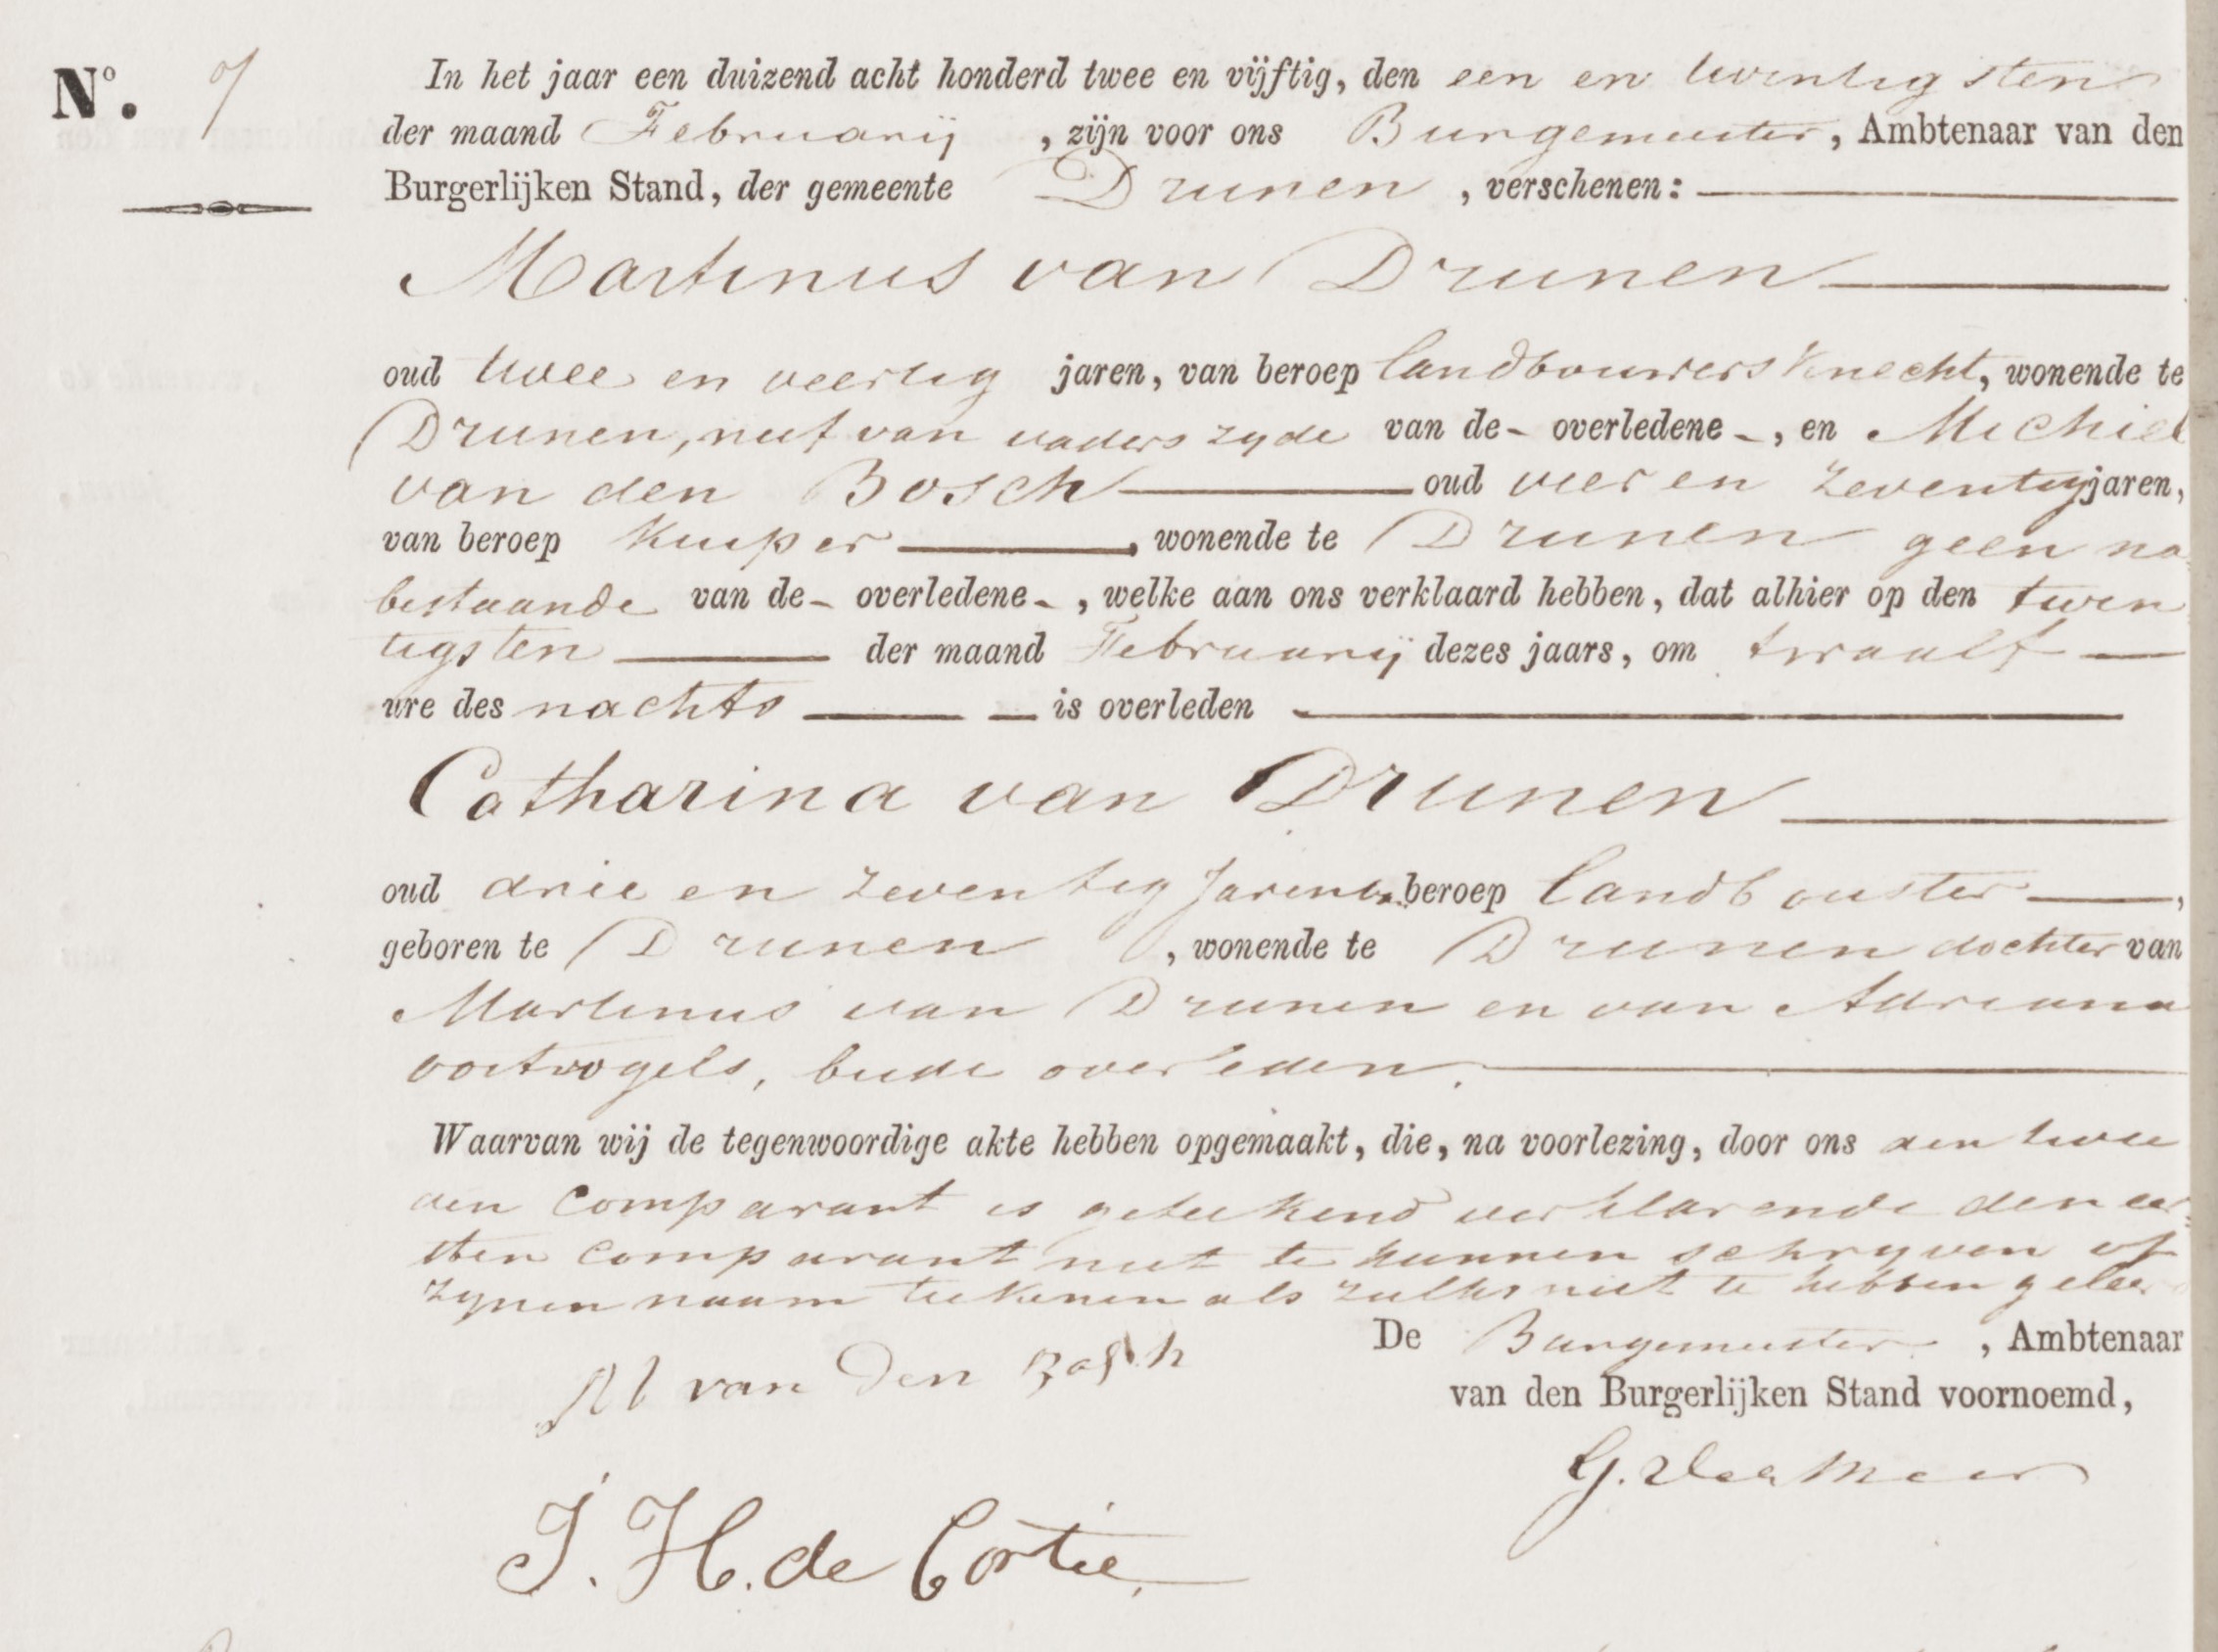 N°. 7
In het jaar een duizend acht honderd twee en vijftig, den een en twintigsten
der maand Februarij , zijn voor ons Burgemeester, Ambtenaar van den
Burgerlijken Stand, der gemeente Drunen , verschenen:
Martinus van Drunen
oud twee en veertig jaren, van beroep landbouwersknecht, wonende te
Drunen, neef van vaders zyde van de- overledene -, en Michiel
van den Bosch oud vier en zeventig jaren,
van beroep Kuiper , wonende te Drunen geen na
bestaande van de- overledene- , welke aan ons verklaard hebben, dat alhier op den twen
tigsten der maand Februarij dezes jaars, om twaalf
ure des nachts is overleden
Catharina van Drunen
oud drie en zeventig Jaren van beroep landbouster ,
geboren te Drunen , wonende te Drunen dochter van
Martinus van Drunen en van Adriana
oostvogels, beide overleden.
Waarvan wij de tegenwoordige akte hebben opgemaakt, die, na voorlezing, door ons den twee
den Comparant is geteekend verklarende den eer
sten Comparant niet te kunnen schryven of
zynen naam teekenen als zulks niet te hebben geleer
De Burgemeester , Ambtenaar
M van den Bosch
van den Burgerlijken Stand voornoemd,
J. H. de Cortie.